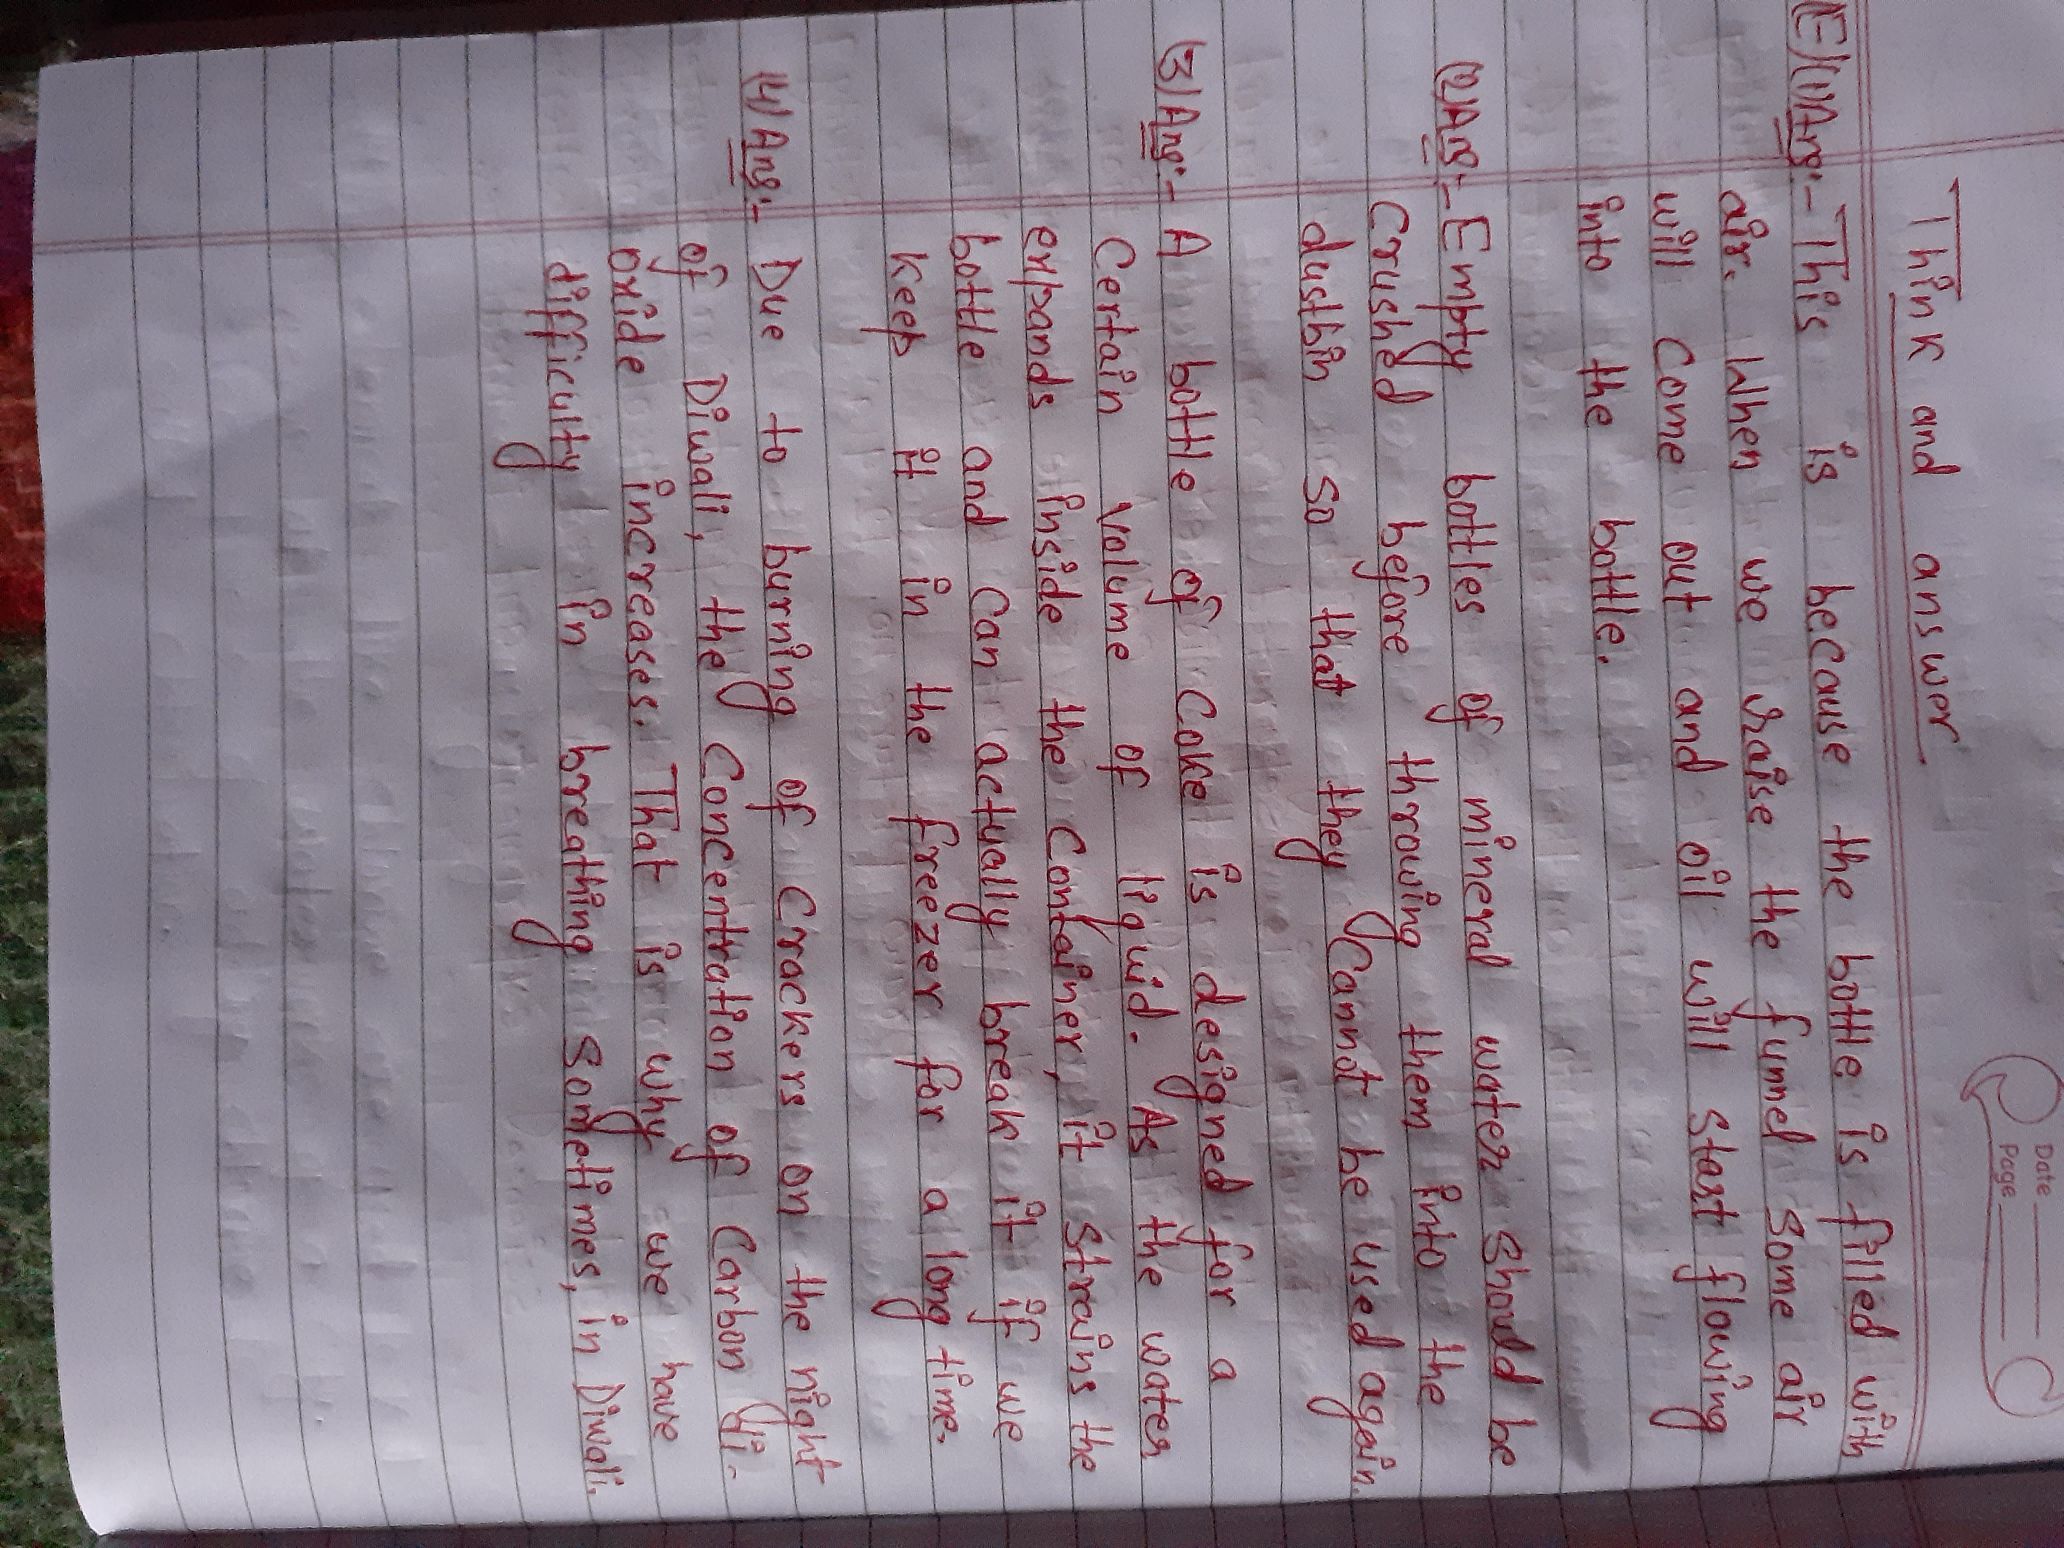 Date
Page
Think and answer
(E)(1)Ans:- This is because the bottle is filled with
air. When we raise the funnel some air
will come out and oil will start flowing
into the bottle.
(2)Ans:- Empty bottles of mineral water should be
Crushed before throwing them into the
dustbin so that they Cannot be used again.
(3)Ans:- A bottle of Coke is designed for a
Certain volume of liquid. As the water
expands inside the Container, it strains the
bottle and Can actually break it if we
keep it in the freezer for a long time.
(4)Ans:- Due to burning of Crackers on the night
of Diwali, the Concentration of Carbon di-
oxide increases. That is why we have
difficulty in breathing sometimes, in Diwali.